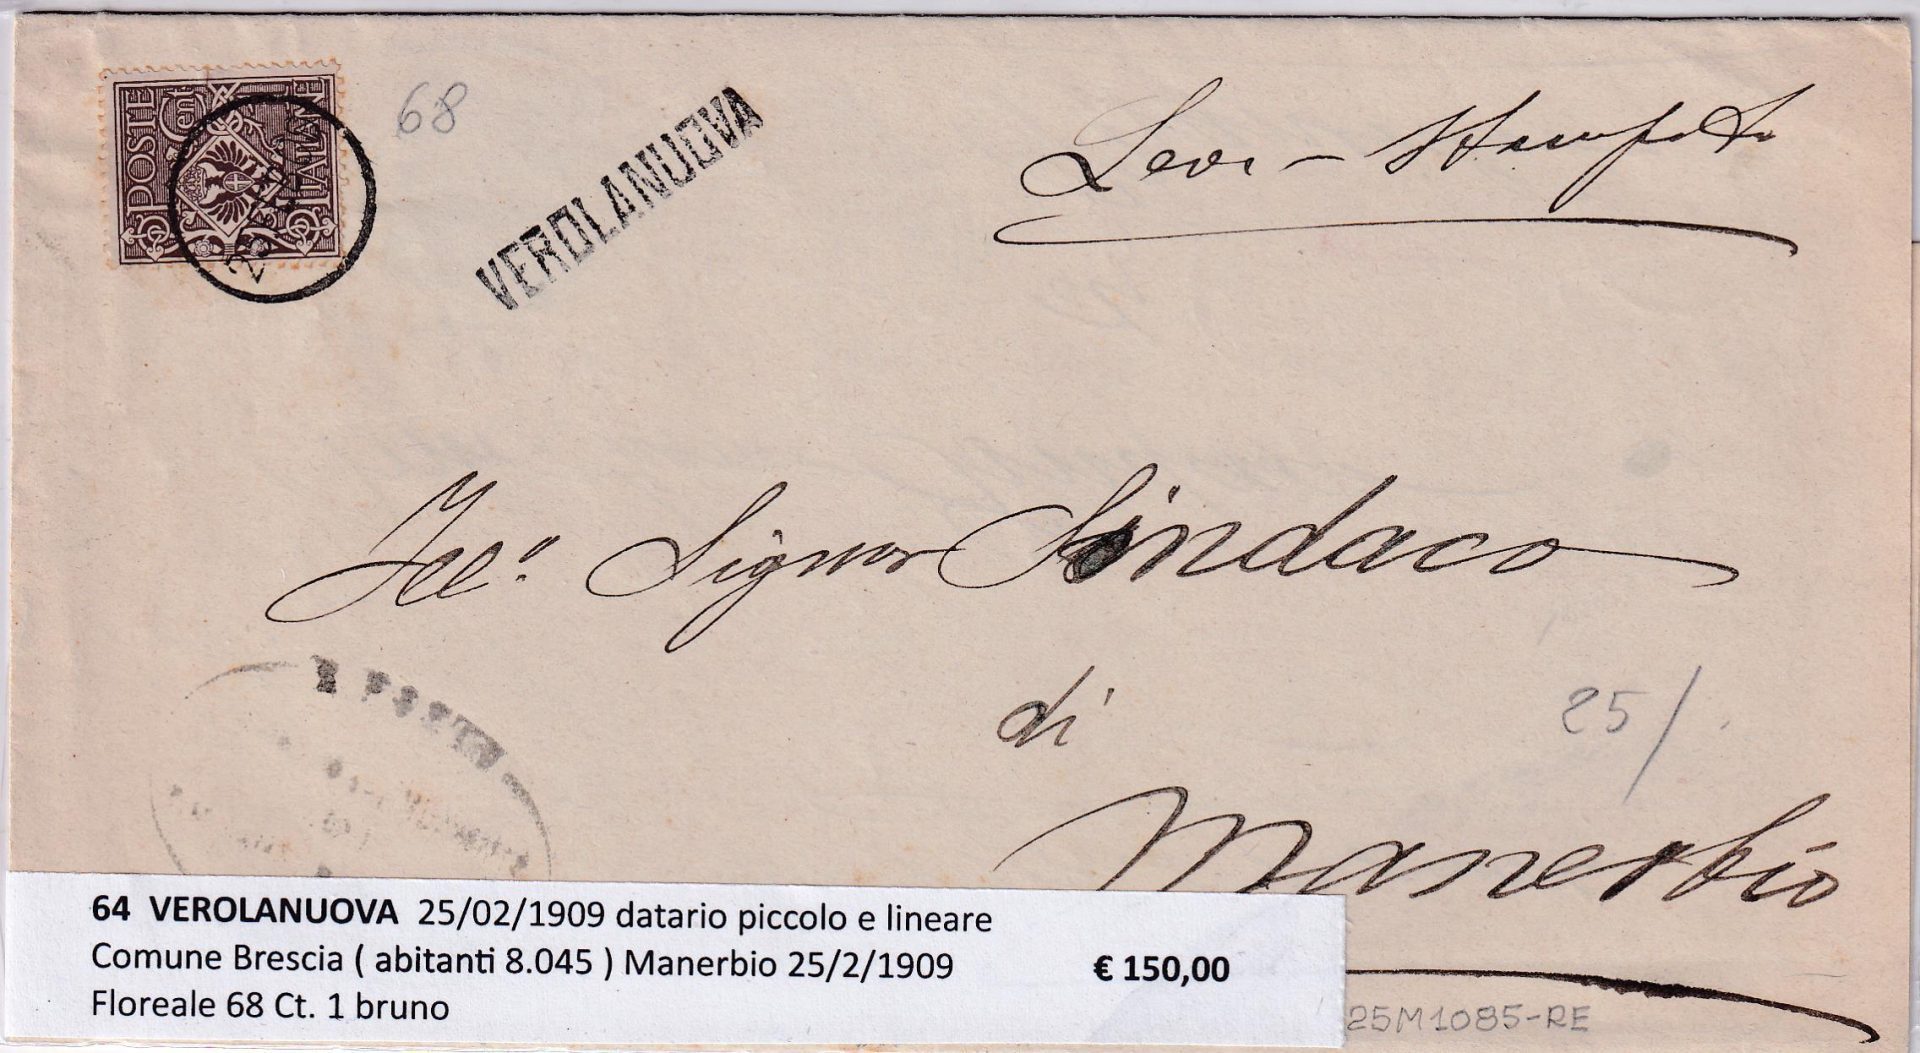 POSTE
ITALIANE
Cent.
68
VEROLANUOVA
Leva - Stampato
Ill.º Signor Sindaco
di
25/.
Manerbio
64 VEROLANUOVA 25/02/1909 datario piccolo e lineare
Comune Brescia ( abitanti 8.045 ) Manerbio 25/2/1909 € 150,00
Floreale 68 Ct. 1 bruno
25M1085-RE